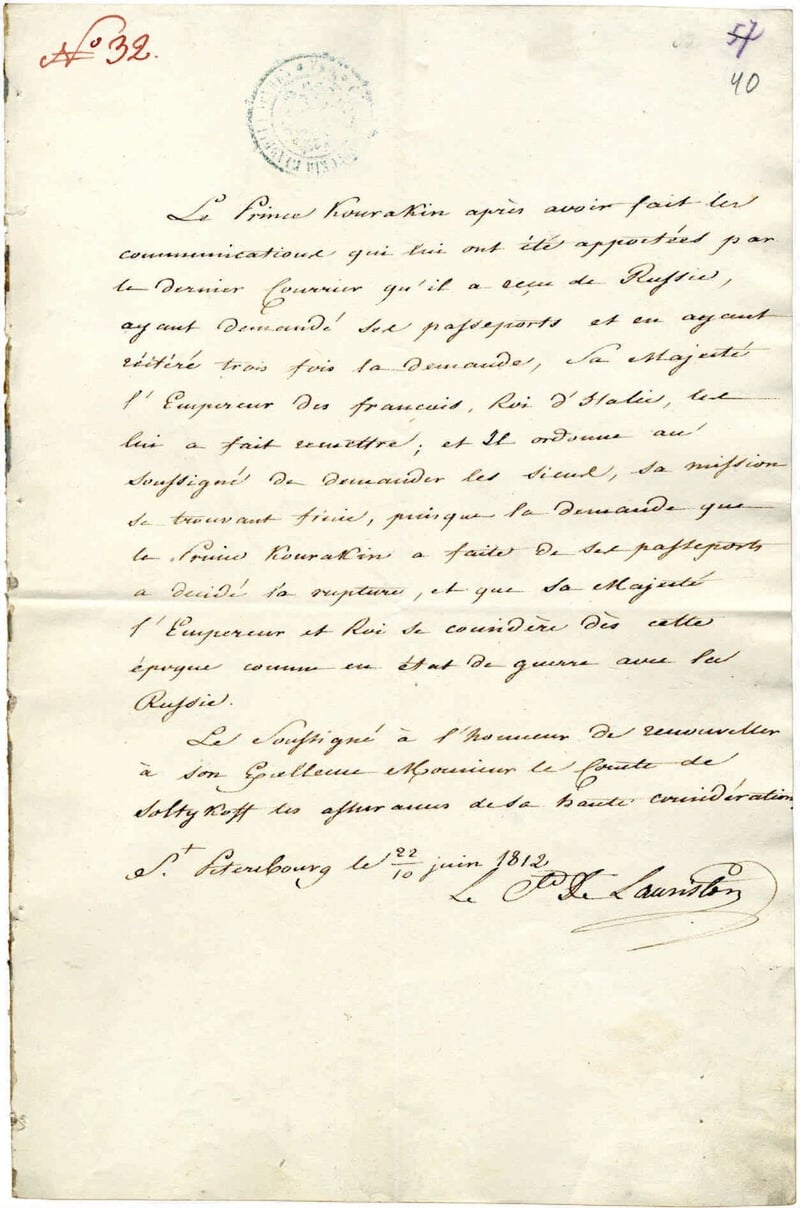 № 32.
57
40
Le Prince Kourakin après avoir fait les
communications qui lui ont été apportées par
le dernier Courrier qu'il a reçu de Russie,
ayant demandé ses passeports et en ayant
réitéré trois fois la demande, Sa Majesté
l'Empereur des françois, Roi d'Italie, les
lui a fait remettre; et Il ordonne au
soussigné de demander les siens, sa mission
se trouvant finie, puisque la demande que
le Prince Kourakin a faite de ses passeports
a décidé la rupture, et que Sa Majesté
l'Empereur et Roi se considère dès cette
époque comme en état de guerre avec la
Russie.
Le Soussigné à l'honneur de renouveller
à son Excellence Monsieur le Comte de
Soltykoff les assurances de sa haute considération
St. Petersbourg le 22/10 juin 1812
Le Cte De Lauriston